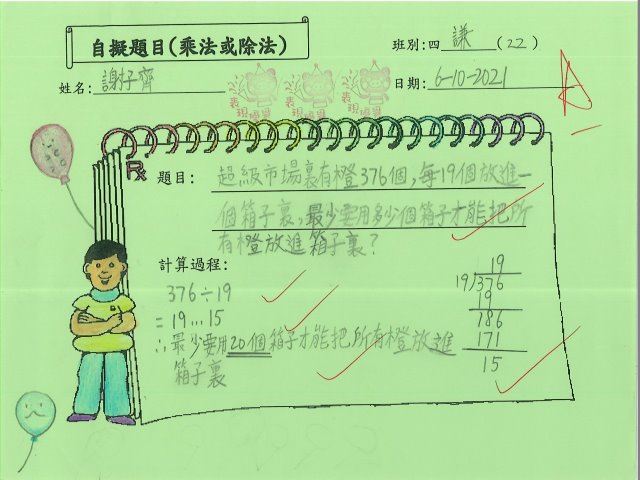 自擬題目(乘法或除法)
班別:四 謙 (22)
姓名: 謝子齊
日期: 6-10-2021
表現優異 表現優異 表現優異
A-
題目: 超級市場裏有橙376個,每19個放進一
個箱子裏,最少要用多少個箱子才能把所
有橙放進箱子裏?
計算過程:
376÷19
=19...15
∴最少要用20個箱子才能把所有橙放進
箱子裏
19
19)376
19
186
171
15